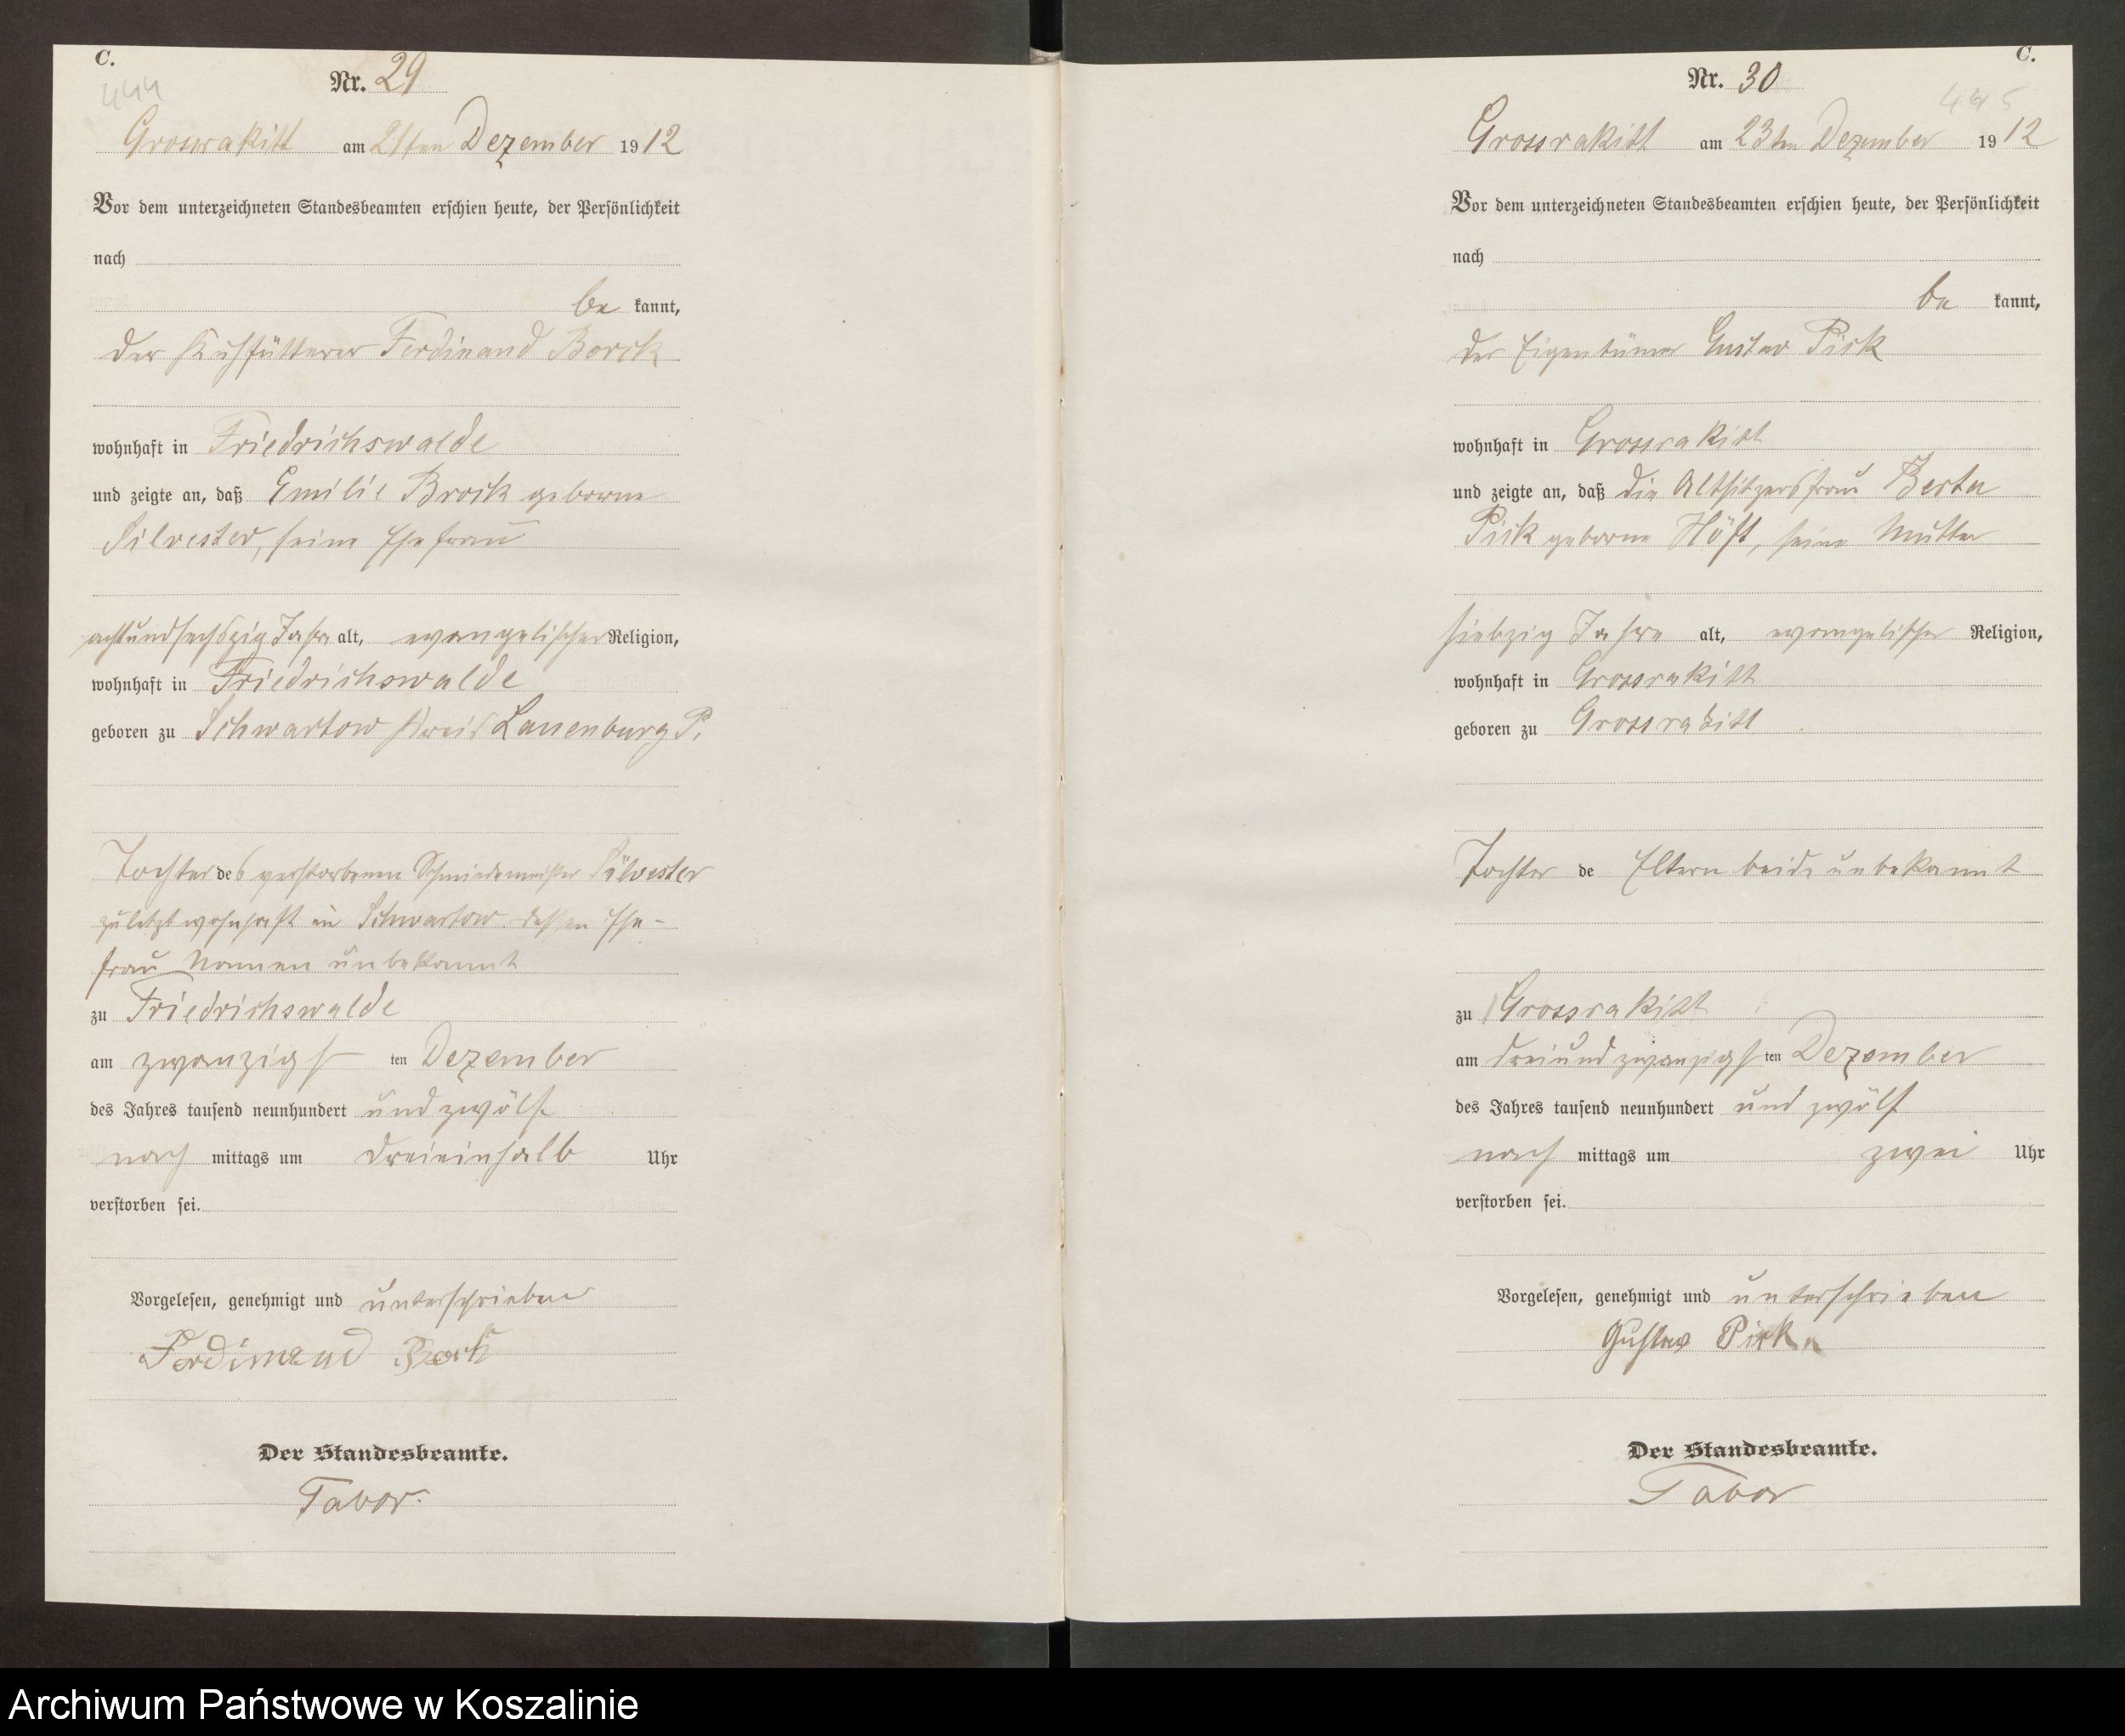 C.
444
Nr. 29
Grossrakitt am 21ten Dezember 1912
Vor dem unterzeichneten Standesbeamten erschien heute, der Persönlichkeit
nach
be kannt,
der Kuhfütterer Ferdinand Borck
wohnhaft in Friedrichswalde
und zeigte an, daß Emilie Brock geborne
Silvester, seine Ehefrau
achtundsechszig Jahre alt, evangelischer Religion,
wohnhaft in Friedrichswalde
geboren zu Schwartow Kreis Lauenburg P.
Tochter des verstorbenen Schmiedemeister Silvester
zuletzt wohnhaft in Schwartow dessen Ehe-
frau Namen unbekannt
zu Friedrichswalde
am zwanzigst ten Dezember
des Jahres tausend neunhundert und zwölf
nach mittags um dreieinhalb Uhr
verstorben sei.
Vorgelesen, genehmigt und unterschrieben
Ferdinand Bork
Der Standesbeamte.
Tabor.
C.
445
Nr. 30
Grossrakitt am 23ten Dezember 1912
Vor dem unterzeichneten Standesbeamten erschien heute, der Persönlichkeit
nach
be kannt,
der Eigentümer Gustav Pirk
wohnhaft in Grossrakitt
und zeigte an, daß die Altsitzersfrau Berta
Pirk geborne Höft, seine Mutter
siebzig Jahre alt, evangelischer Religion,
wohnhaft in Grossrakitt
geboren zu Grossrakitt
Tochter de Eltern beide unbekannt
zu Grossrakitt
am dreiundzwanzigst ten Dezember
des Jahres tausend neunhundert und zwölf
nach mittags um zwei Uhr
verstorben sei.
Vorgelesen, genehmigt und unterschrieben
Gustav Pirk
Der Standesbeamte.
Tabor
Archiwum Państwowe w Koszalinie